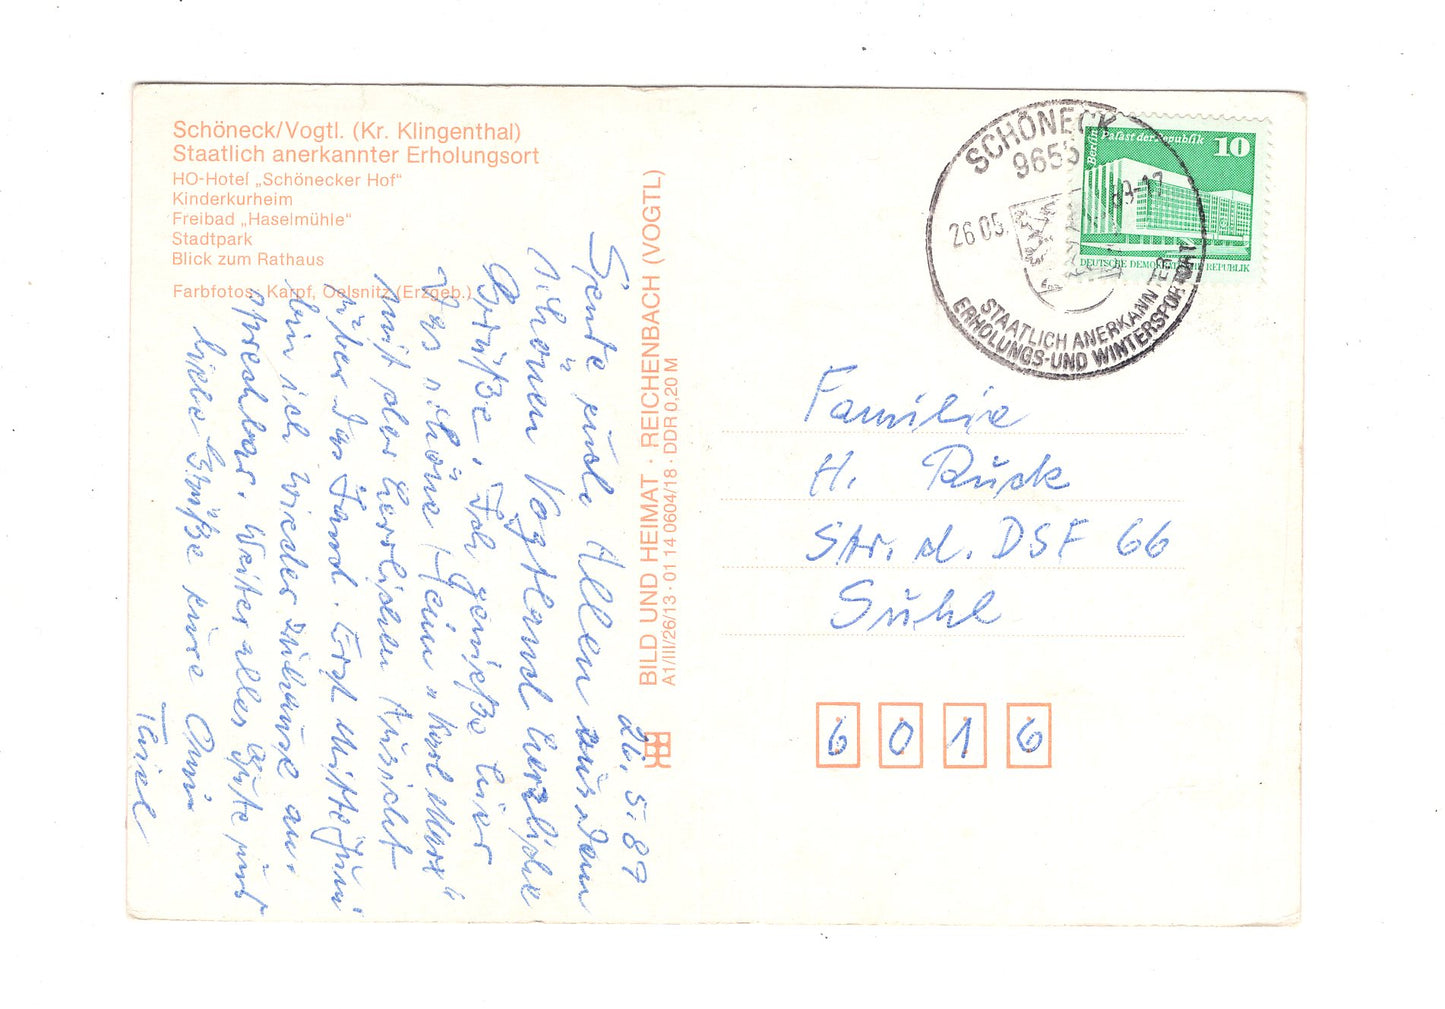 Schöneck/Vogtl. (Kr. Klingenthal)
Staatlich anerkannter Erholungsort
HO-Hotel „Schönecker Hof"
Kinderkurheim
Freibad „Haselmühle"
Stadtpark
Blick zum Rathaus
Farbfotos: Karpf, Oelsnitz (Erzgeb.)
26.5.89
Sende Allen aus dem
schönen Vogtland herzliche
Grüße, Ich genieße hier
das schöne Heim „Karl Marx"
mit der herrlichen Aussicht
über das Land. Erst Mitte Juni
bin ich wieder zuhause an-
sprechbar. Weiter alles Gute und
liebe Grüße eure Anni
BILD UND HEIMAT · REICHENBACH (VOGTL)
A1/III/26/13 · 01 14 0604/18 · DDR 0,20 M
SCHÖNECK
9655
26.05.89-17
STAATLICH ANERKANNTER
ERHOLUNGS- UND WINTERSPORTORT
Berlin Palast der Republik 10
DEUTSCHE DEMOKRATISCHE REPUBLIK
Familie
H. Rück
Str. d. DSF 66
Suhl
6016